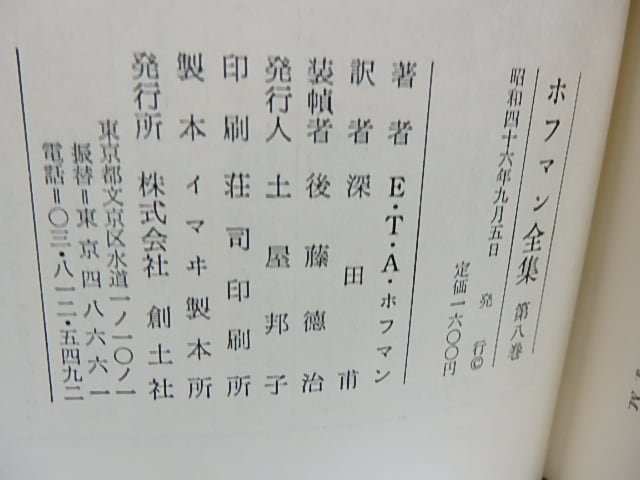 ホフマン全集 第八巻
昭和四十六年九月五日 発行©
定価一六〇〇円
著者 E・T・A・ホフマン
訳者 深田甫
装幀者 後藤德治
発行人 土屋邦子
印刷 荘司印刷所
製本 イマヰ製本所
発行所 株式会社 創土社
東京都文京区水道一ノ一〇ノ一
振替=東京四八六六一
電話=〇三・八一二・五四九二